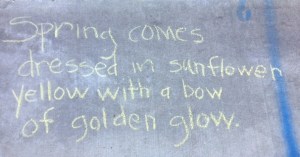 Spring comes
dressed in sunflower
yellow with a bow
of golden glow.